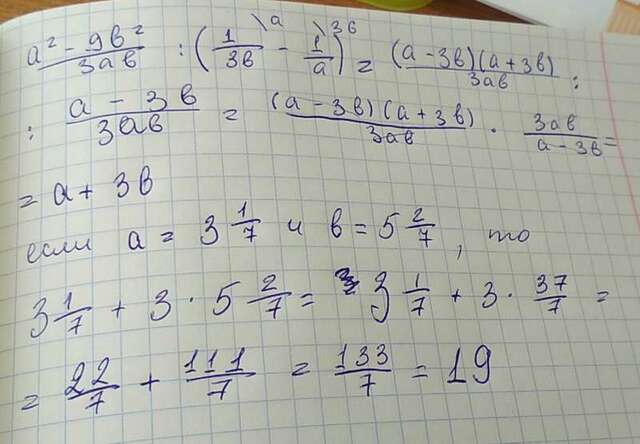 (a² - 9b²)/(3ab) : (1/(3b) \a - 1/a \3b) = ((a - 3b)(a + 3b))/(3ab) :
: (a - 3b)/(3ab) = ((a - 3b)(a + 3b))/(3ab) · (3ab)/(a - 3b) =
= a + 3b
если a = 3 1/7 и b = 5 2/7, то
3 1/7 + 3 · 5 2/7 = 3 1/7 + 3 · 37/7 =
= 22/7 + 111/7 = 133/7 = 19